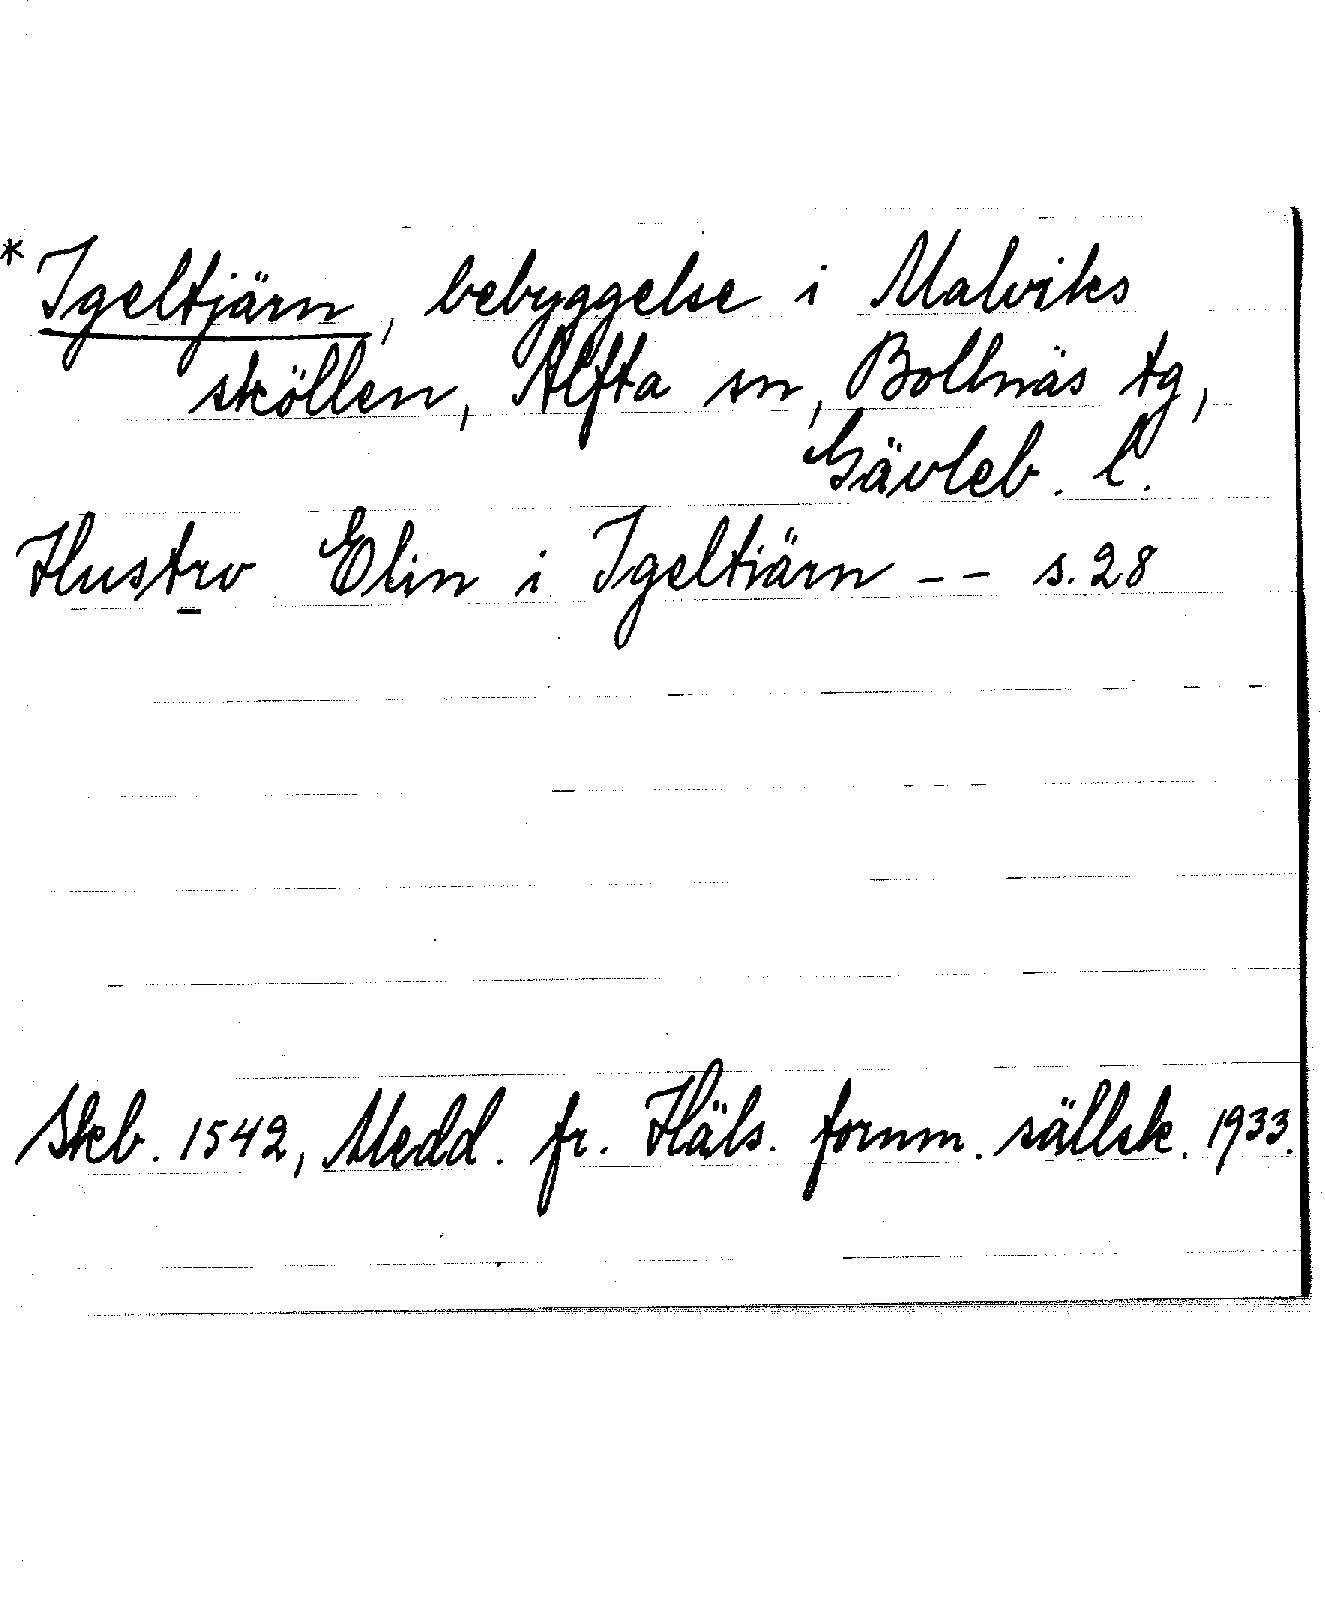 * Igeltjärn, bebyggelse i Malviks
sköllen, Alfta sn, Bollnäs tg,
Gävleb. l.
Hustrv Elin i Igeltiärn - - s. 28
Skb. 1542, Medd. fr. Häls. fornm. sällsk. 1933.